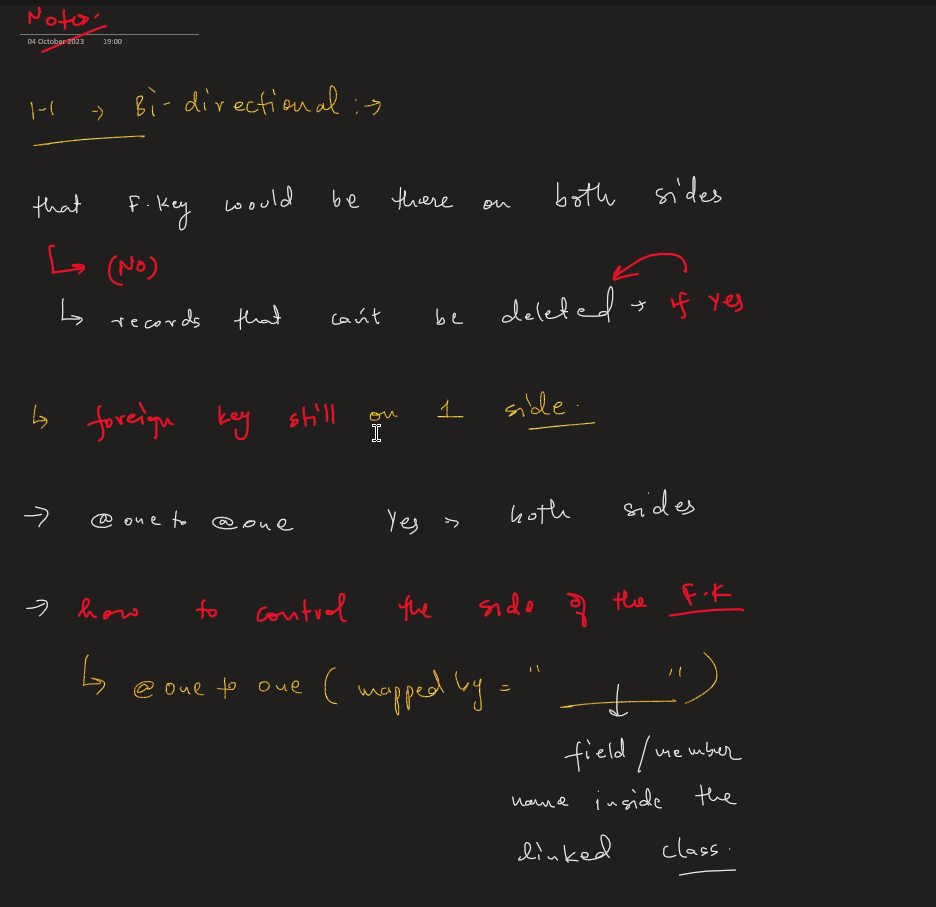 Notes:
04 October 2023 19:00
1-1 → Bi-directional :→
that F.Key would be there on both sides
↳ (No)
↳ records that can't be deleted → if Yes
↳ foreign key still on 1 side.
→ @one to @one Yes → both sides
→ how to control the side of the F.K
↳ @one to one ( mapped by = " ")
field/member
name inside the
linked class.